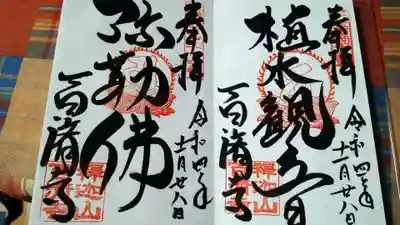 奉拝
植水観音
令和四年
十一月廿八日
百済寺
釋迦山
百済寺
奉拝
弥勒佛
令和四年
十一月廿八日
百済寺
釋迦山
百済寺